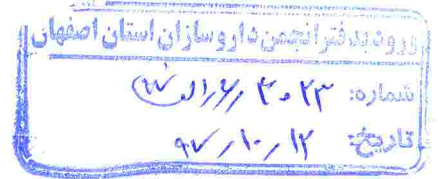 ورود به دفتر انجمن داروسازان استان اصفهان
شماره: ۳۰۲۳
تاریخ: ۹۷/۱۰/۱۲